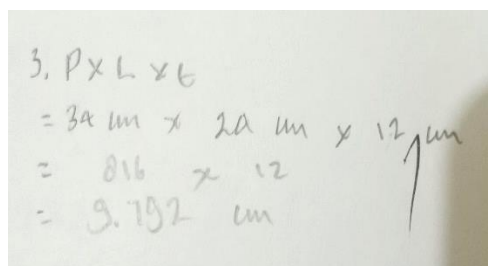 3. P x L x t
= 34 cm x 24 cm x 12 cm
= 816 x 12
= 9.792 cm